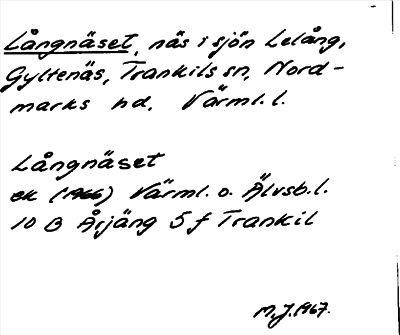 Långnäset, näs i sjön Lelång,
Gyltenäs, Trankils sn, Nord-
marks hd, Värml. l.
Långnäset
ek (1966) Värml. o. Älvsb. l.
10 B Årjäng 5 f Trankil
M.J. 1967.